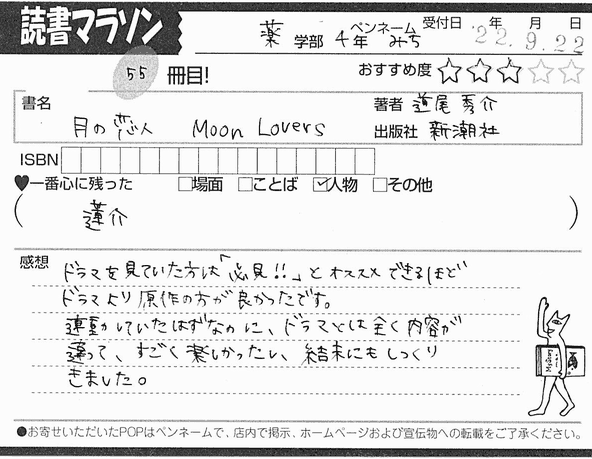 読書マラソン
薬 学部 4年 ペンネーム みち 受付日 '22.年9.月22日
55 冊目! おすすめ度 ☆☆☆☆☆
書名 著者 道尾秀介
月の恋人 Moon Lovers 出版社 新潮社
ISBN
♥一番心に残った □場面 □ことば ☑人物 □その他
( 蓮介 )
感想 ドラマを見ていた方は「必見!!」とオススメできるほど
ドラマより原作の方が良かったです。
連動していたはずなのに、ドラマとは全く内容が
違って、すごく楽しかったし、結末にもしっくり
きました。
●お寄せいただいたPOPはペンネームで、店内で掲示、ホームページおよび宣伝物への転載をご了承ください。